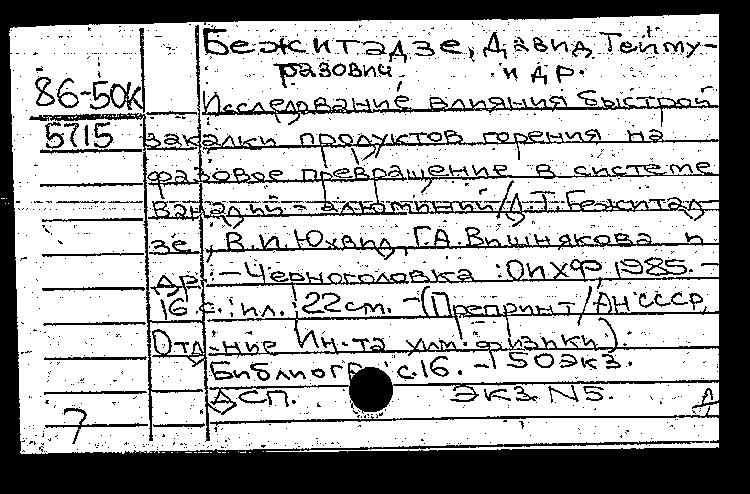 Бежитадзе, Давид Тейму-
разович и др.
86-50К
5715
Исследование влияния быстрой
закалки продуктов горения на
фазовое превращение в системе
ванадий - алюминий/Д.Т.Бежитад-
зе, В.И.Юхвид, Г.А.Вишнякова и
др. - Черноголовка : ОИХФ, 1985. -
16 с. : ил. ; 22см. - (Препринт/АН СССР,
Отд-ние Ин-та хим. физики).
Библиогр.: с.16. - 150экз.
ДСП. Экз. N5.